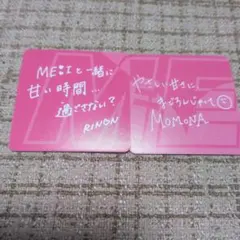 ME:Iと一緒に
甘い時間...
過ごさない?
RINON
やさしい甘さに
まごろんじゃって
MOMONA